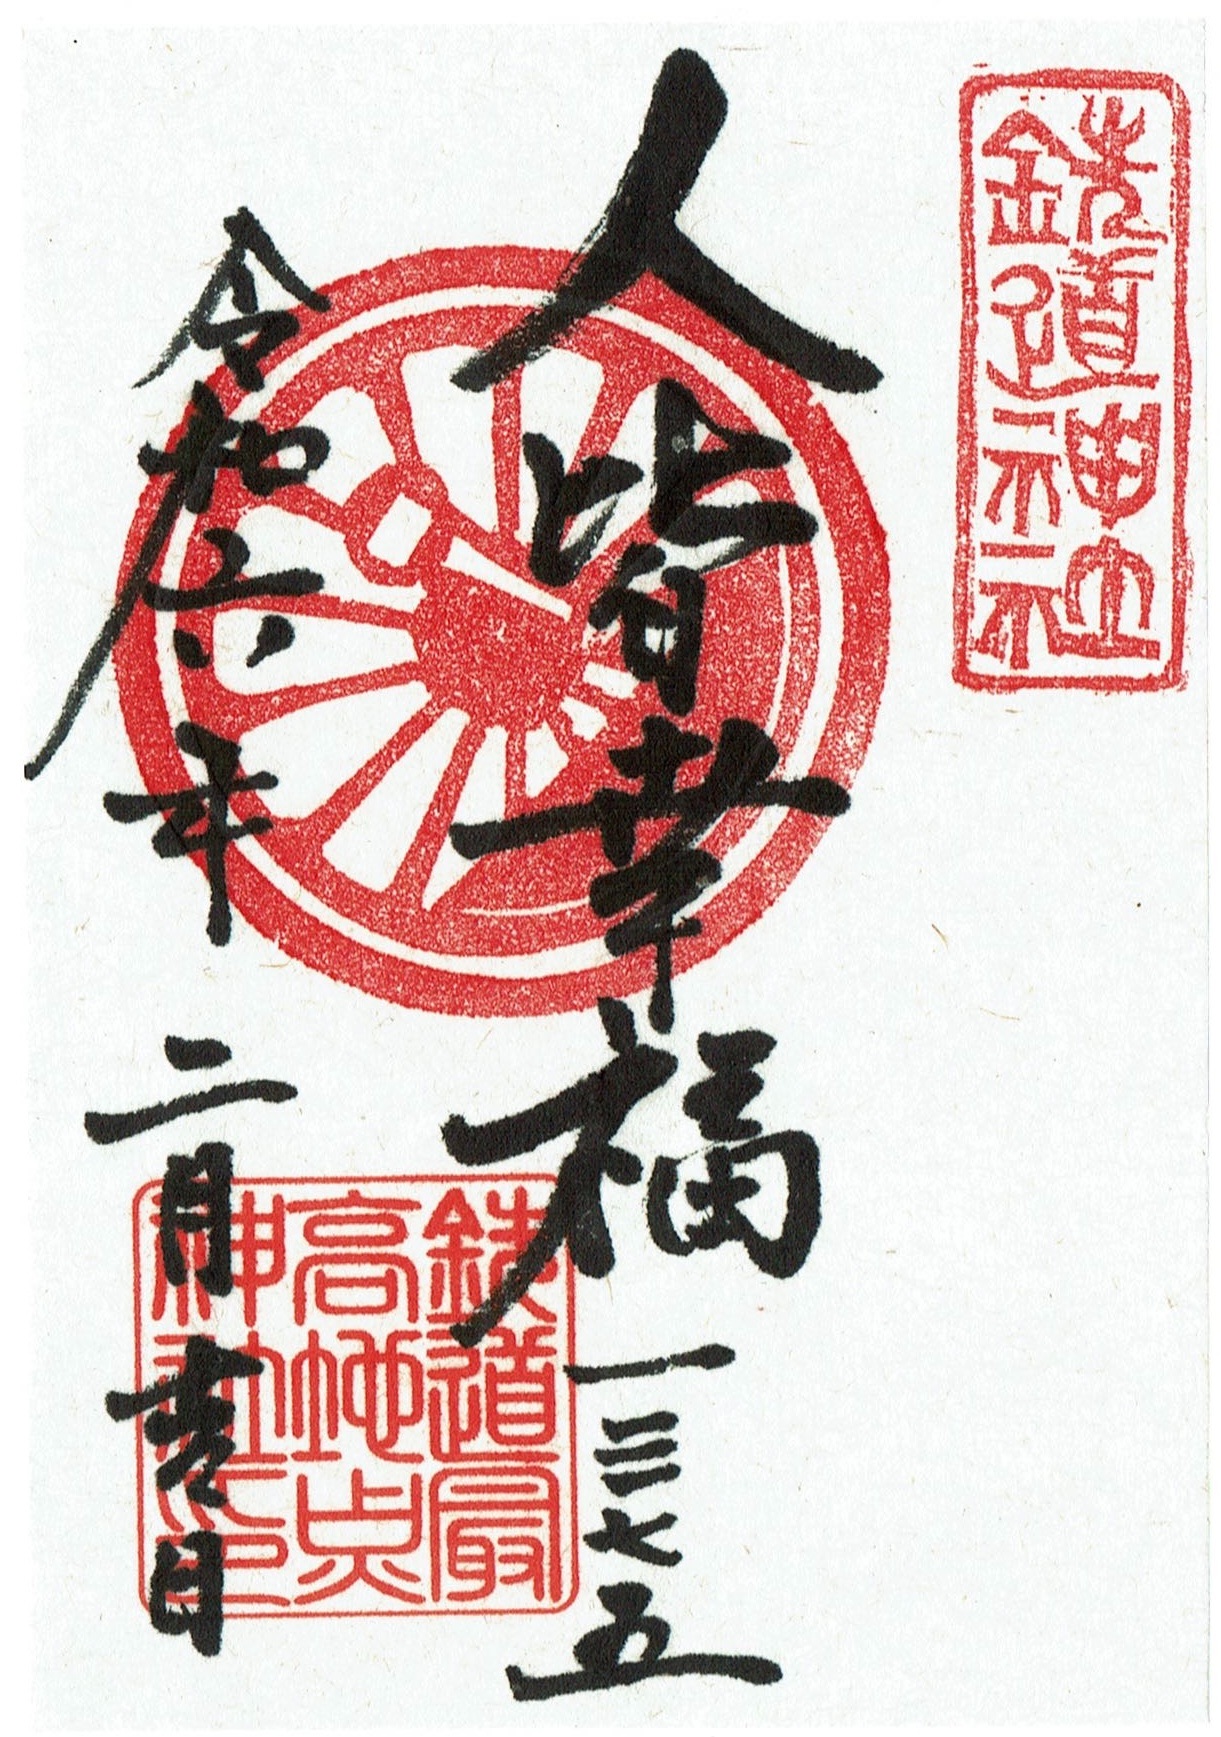 鉄道神社
人皆幸福 一三七五
鉄道最
高地点
神社印
令和六年 二月吉日